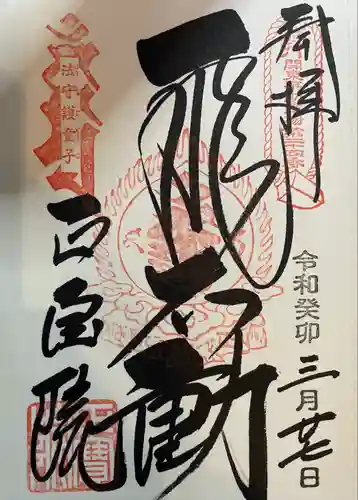 奉拝
令和癸卯 三月廿七日
飛不動
法守護童子
正宝院